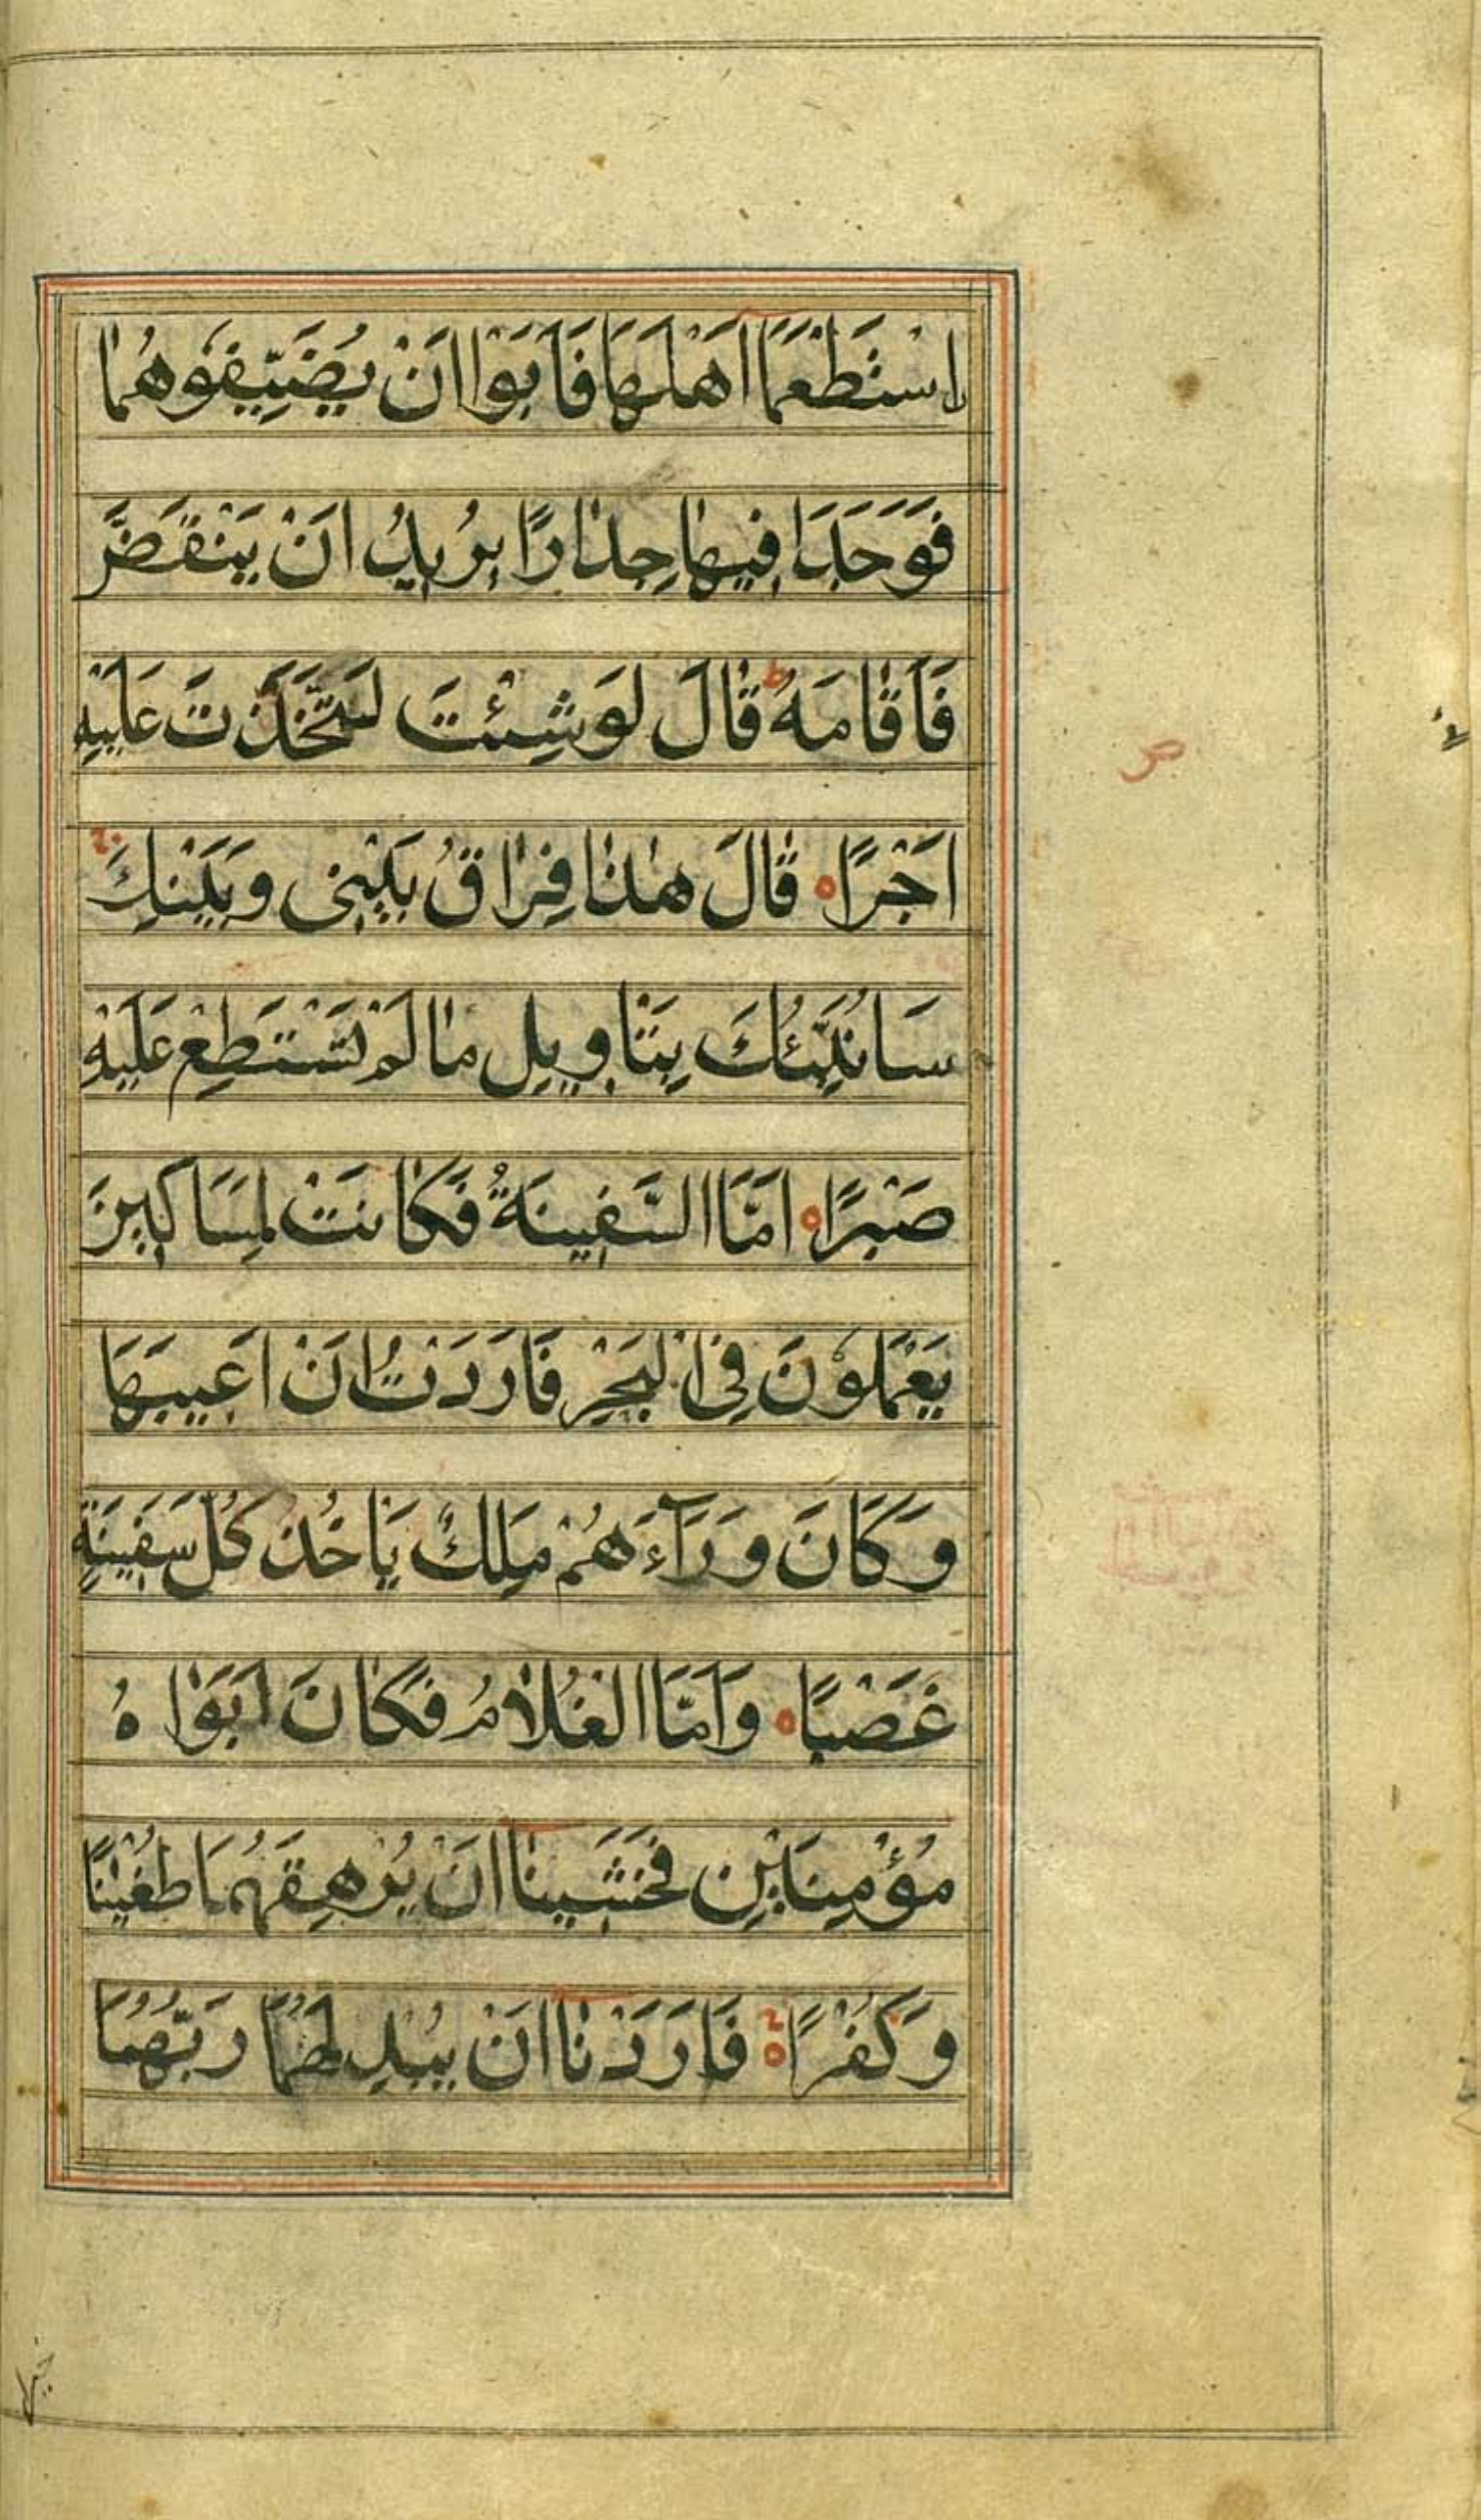 اسْتَطْعَمَا اَهْلَهَا فَاَبَوْا اَنْ يُضَيِّفُوهُمَا
فَوَجَدَا فِيهَا جِدَارًا يُرِيدُ اَنْ يَنْقَضَّ
فَاَقَامَهُ ط قَالَ لَوْ شِئْتَ لَتَّخَذْتَ عَلَيْهِ
اَجْرًا ه قَالَ هٰذَا فِرَاقُ بَيْنِى وَبَيْنِكَ
سَاُنَبِّئُكَ بِتَاْوِيلِ مَا لَمْ تَسْتَطِعْ عَلَيْهِ
صَبْرًا ه اَمَّا السَّفِينَةُ فَكَانَتْ لِمَسَاكِينَ
يَعْمَلُونَ فِى الْبَحْرِ فَاَرَدْتُ اَنْ اَعِيبَهَا
وَكَانَ وَرَآءَهُمْ مَلِكٌ يَاْخُذُ كُلَّ سَفِينَةٍ
غَصْبًا ه وَاَمَّا الْغُلَامُ فَكَانَ اَبَوَاهُ
مُؤْمِنَيْنِ فَخَشِينَا اَنْ يُرْهِقَهُمَا طُغْيٰنًا
وَكُفْرًا ه فَاَرَدْنَا اَنْ يُبْدِلَهُمَا رَبُّهُمَا
ص